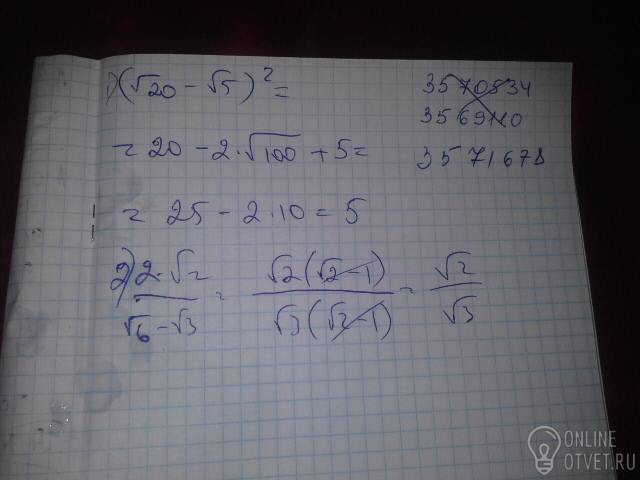 1) (√20 - √5)² =
= 20 - 2·√100 + 5 =
= 25 - 2·10 = 5
2) (2 - √2)/(√6 - √3) = (√2(√2 - 1))/(√3(√2 - 1)) = √2/√3
3570534
3569110
3571678
ONLINE
OTVET.RU